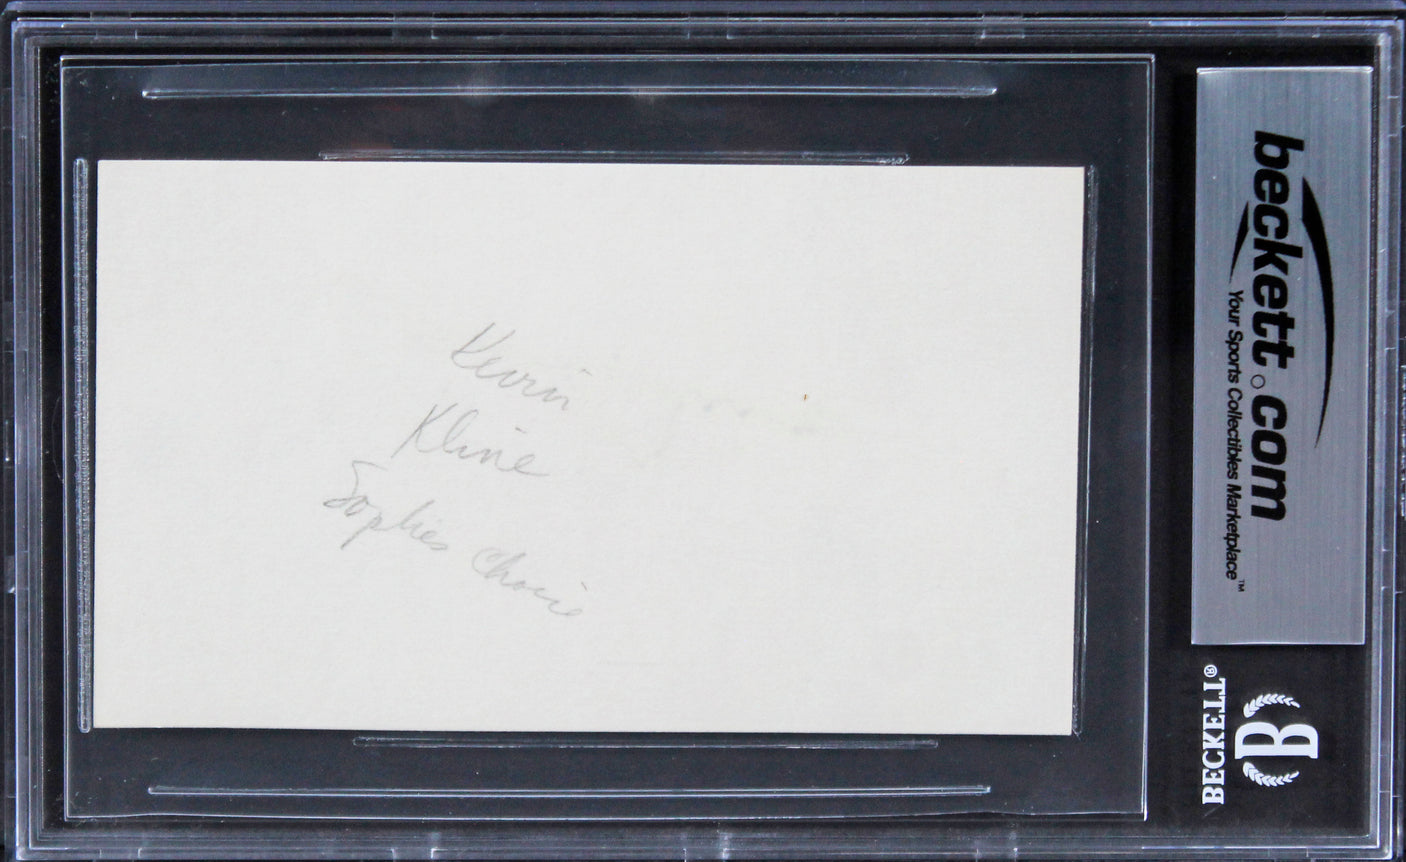 Kevin
Kline
Sophies Choice
beckett.com
Your Sports Collectibles Marketplace™
BECKETT®
B